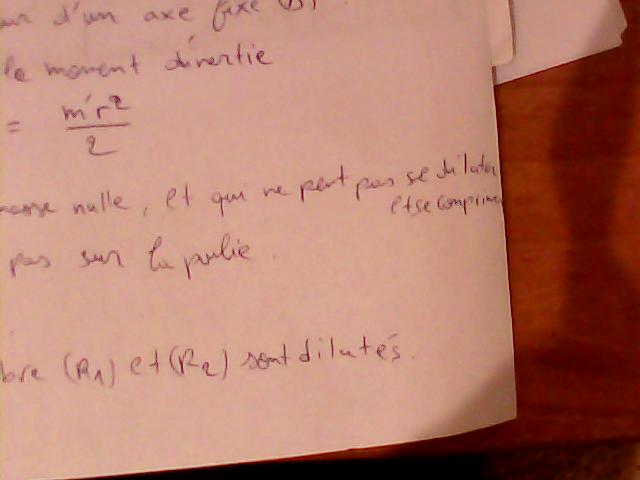 d'un axe fixe
le moment d'inertie
= m'r²
2
nulle, et qui ne peut pas se dilater
et se comprime
pas sur la poulie.
(R₁) et (R₂) sont dilatés.